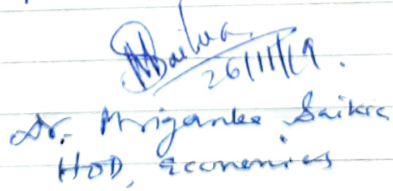 MSaikia
26/11/19.
Dr. Mriganka Saikia
HOD, Economics